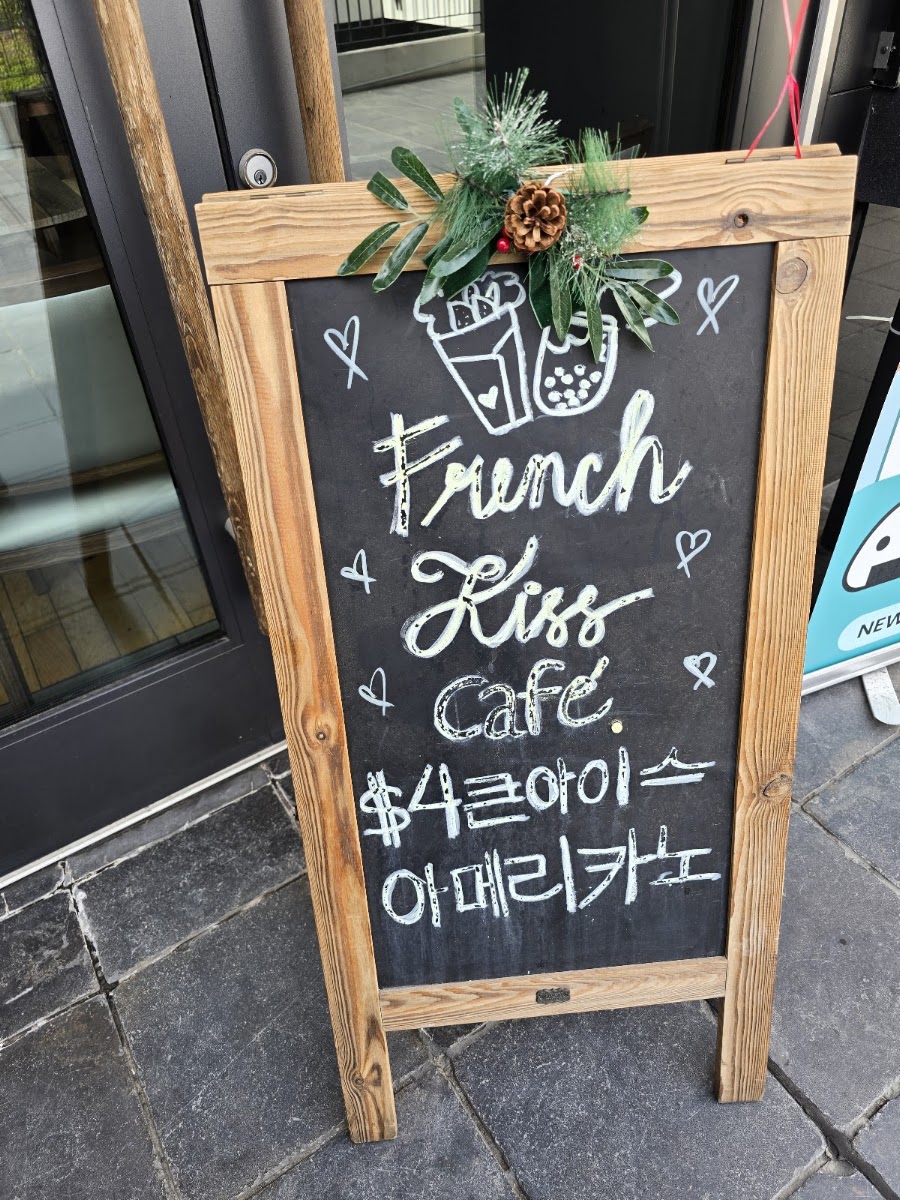 French
Kiss
Café.
$4큰아이스
아메리카노
NEW